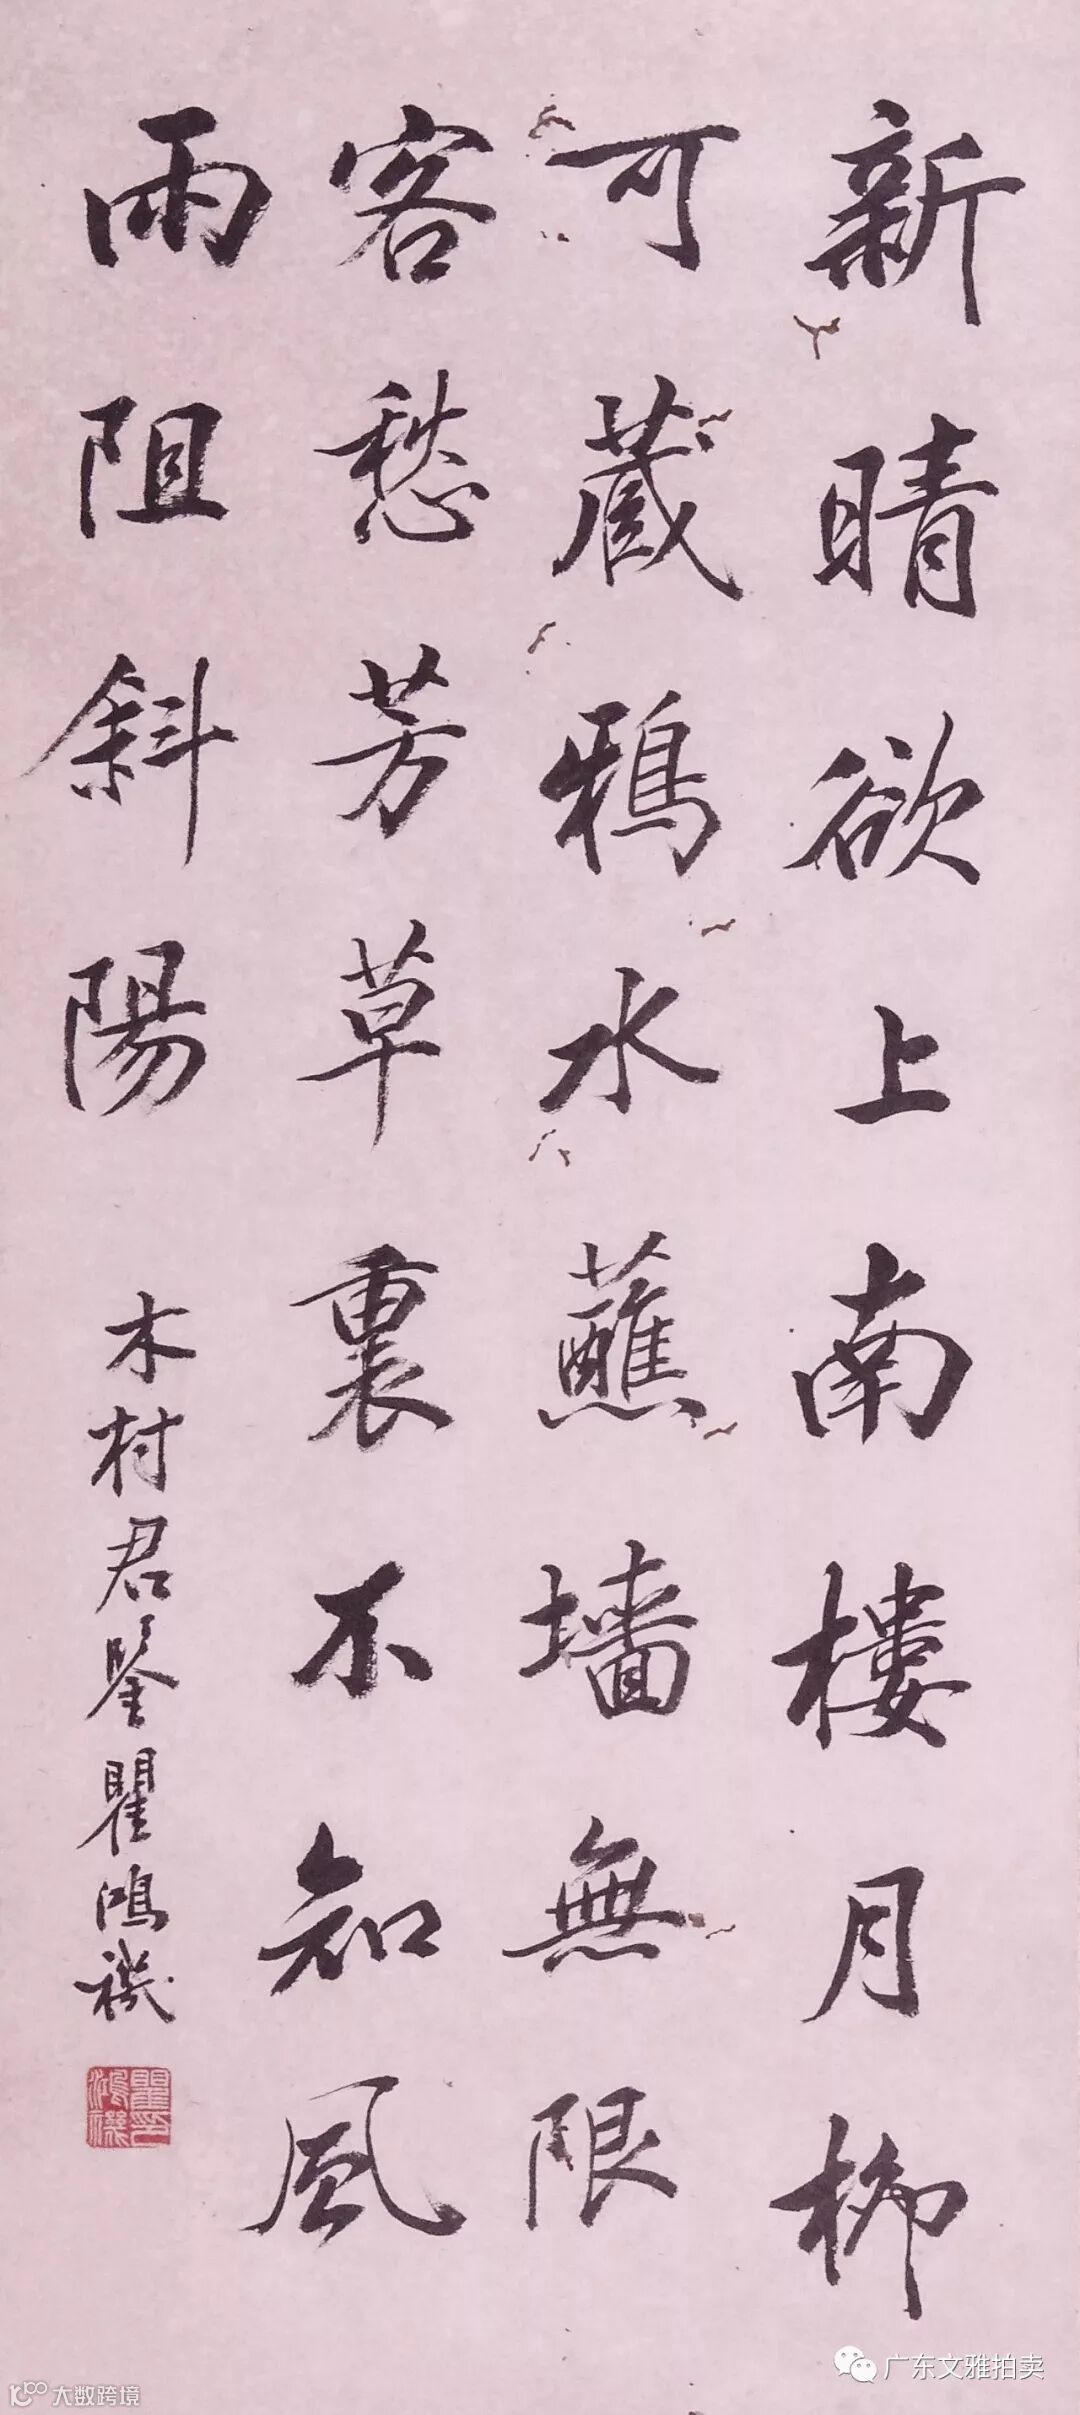 新晴欲上南樓月柳
可蔵鴉水蘸墻無限
客愁芳草裏不知風
雨阻斜陽
木村君鉴瞿鴻禨
瞿印鴻禨
广东文雅拍卖
大数跨境